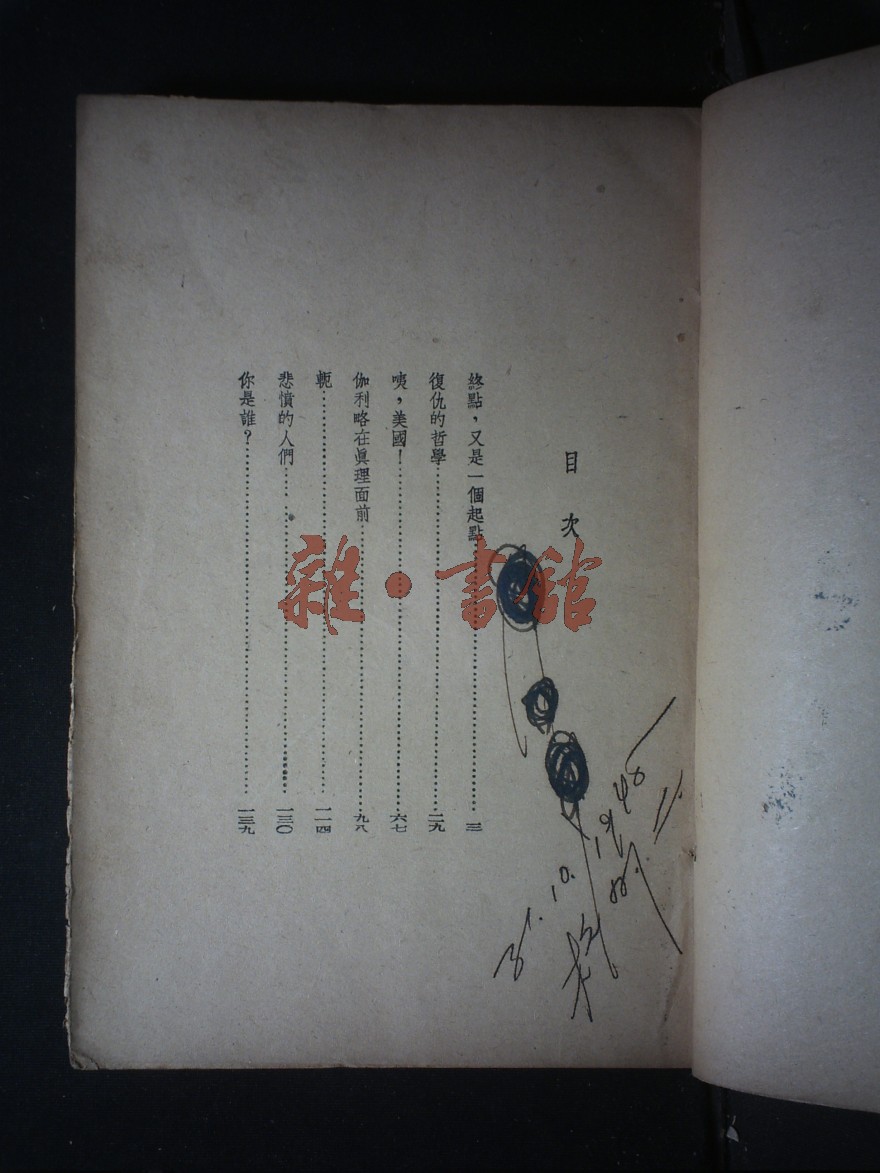 目次
終點，又是一個起點……三
復仇的哲學……二九
咦，美國！……六七
伽利略在眞理面前……九八
軛……一一四
悲憤的人們……一三〇
你是誰？……一三九
雜·書館
31.10.1948